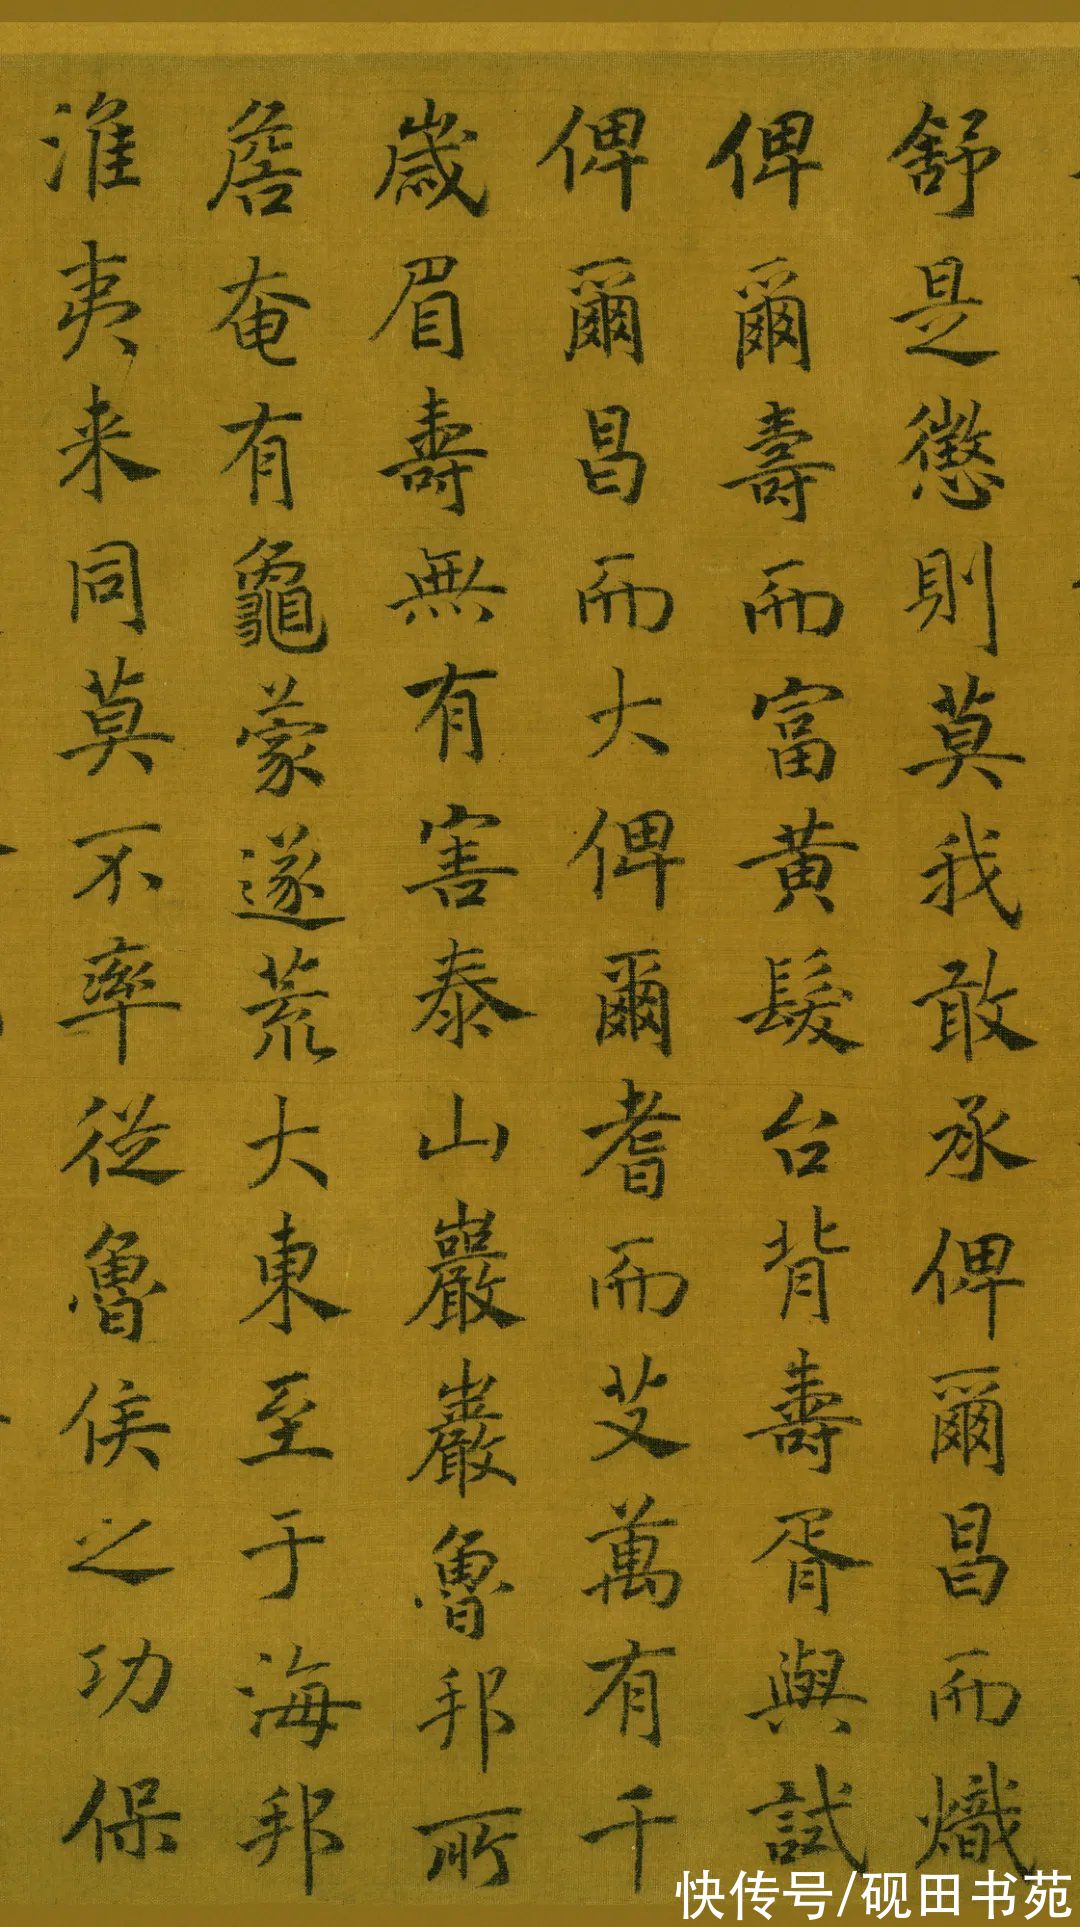 舒是懲則莫我敢承俾爾昌而熾
俾爾壽而富黃髮台背壽胥與試
俾爾昌而大俾爾耆而艾萬有千
歲眉壽無有害泰山巖巖魯邦所
詹奄有龜蒙遂荒大東至于海邦
淮夷来同莫不率從魯侯之功保
快传号/砚田书苑